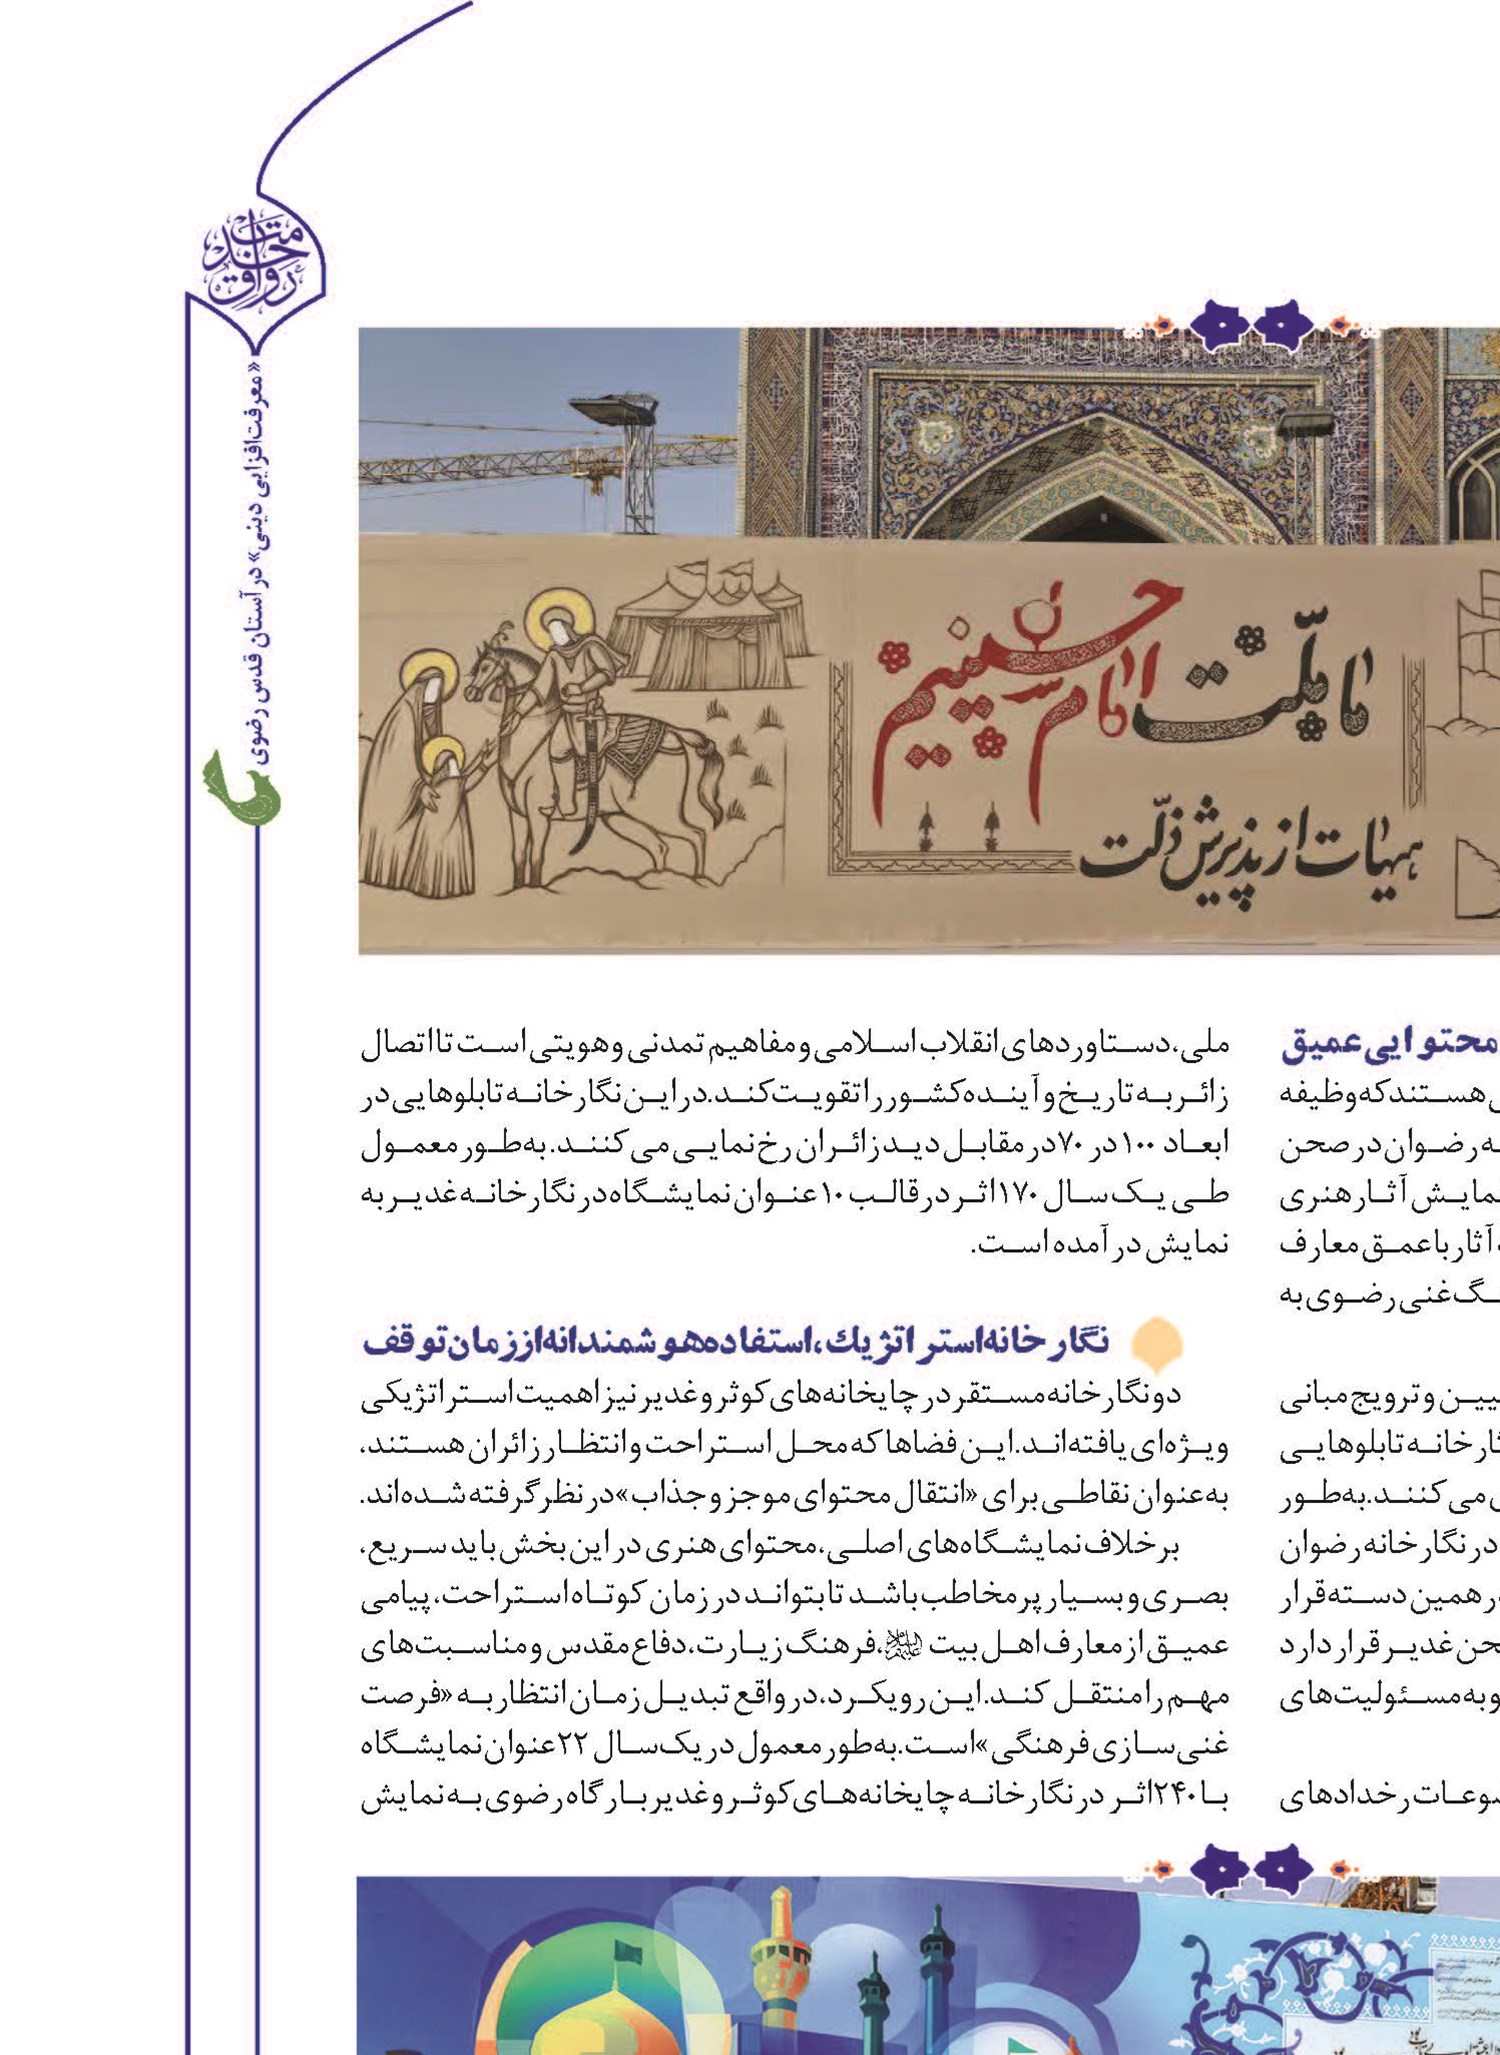 رواق خدمت
«معرفت‌افزایی دینی» در آستان قدس رضوی
ما ملّت امام حسینیم
هیهات از پذیرش ذلّت
محتوایی عمیق
هستند که وظیفه
رضوان در صحن
نمایش آثار هنری
آثار با عمق معارف
غنی رضوی به
و ترویج مبانی
تابلوهایی
می‌کنند. به‌طور
در نگارخانه رضوان
همین دسته قرار
غدیر قرار دارد
و به مسئولیت‌های
رخدادهای
ملی، دستاوردهای انقلاب اسلامی و مفاهیم تمدنی و هویتی است تا اتصال
زائر به تاریخ و آینده کشور را تقویت کند. در این نگارخانه تابلوهایی در
ابعاد ۱۰۰ در ۷۰ در مقابل دید زائران رخ‌نمایی می‌کنند. به‌طور معمول
طی یک سال ۱۷۰ اثر در قالب ۱۰ عنوان نمایشگاه در نگارخانه غدیر به
نمایش درآمده است.
نگارخانه استراتژیك، استفاده هوشمندانه از زمان توقف
دو نگارخانه مستقر در چایخانه‌های کوثر و غدیر نیز اهمیت استراتژیکی
ویژه‌ای یافته‌اند. این فضاها که محل استراحت و انتظار زائران هستند،
به‌عنوان نقاطی برای «انتقال محتوای موجز و جذاب» در نظر گرفته شده‌اند.
برخلاف نمایشگاه‌های اصلی، محتوای هنری در این بخش باید سریع،
بصری و بسیار پرمخاطب باشد تا بتواند در زمان کوتاه استراحت، پیامی
عمیق از معارف اهل بیت علیهم‌السلام، فرهنگ زیارت، دفاع مقدس و مناسبت‌های
مهم را منتقل کند. این رویکرد، در واقع تبدیل زمان انتظار به «فرصت
غنی‌سازی فرهنگی» است. به‌طور معمول در یک سال ۲۲ عنوان نمایشگاه
با ۲۴۰ اثر در نگارخانه چایخانه‌های کوثر و غدیر بارگاه رضوی به نمایش